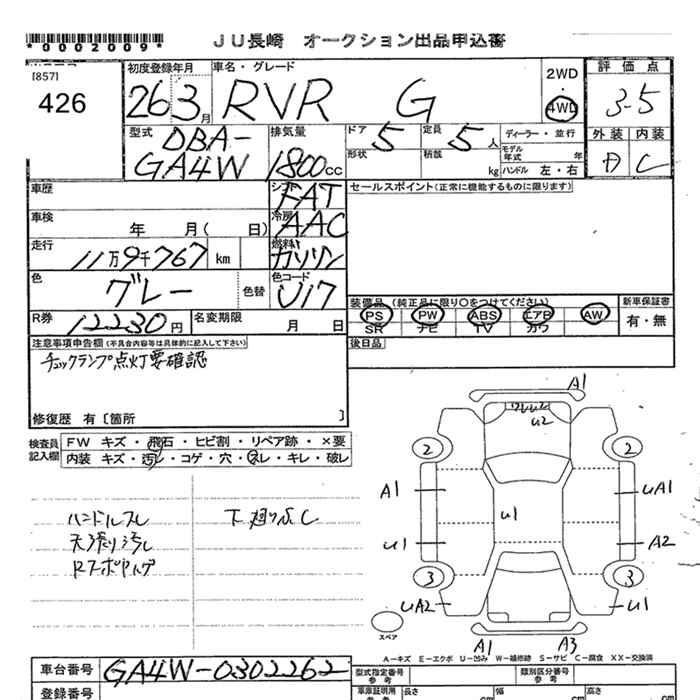 *0002009*
JU長崎 オークション出品申込書
[857]
426
初度登録年月
26 3月
車名・グレード
RVR G
2WD
・
4WD
評価点
3-5
外装 内装
D C
型式
DBA-
GA4W
排気量
1800cc
ドア
5
形状
定員
5人
積載
kg
ディーラー・並行
モデル年式 年
ハンドル 左・右
車歴
シフト
FAT
セールスポイント(正常に機能するものに限ります)
車検
年 月( 日)
冷房
AAC
走行
11万9千767 km
燃料
ガソリン
色
グレー
色替
色コード
U17
装備品 (純正品に限り○をつけてください)
新車保証書
PS PW ABS エアB AW
有・無
SR ナビ TV カワ
R券
12230円
名変期限
月 日
後日品
注意事項申告欄(不具合内容等は具体的に記入して下さい)
チェックランプ点灯要確認
修復歴 有〔箇所 〕
検査員記入欄
FW キズ・飛石・ヒビ割・リペア跡・×要
内装 キズ・汚レ・コゲ・穴・スレ・キレ・破レ
ハンドルスレ
天張り汚レ
下廻りサビ
A1
U2
2 2
A1
UA1
U1
U1
A2
3 3
UA2
U1
スペア
A1
A3
A-キズ E-エクボ U-凹み W-補修跡 S-サビ C-腐食 XX-交換済
車台番号
GA4W-0302262
型式指定番号
参考
類別区分番号
参考
登録番号
車庫証明用
参考
長さ cm
幅 cm
高さ cm